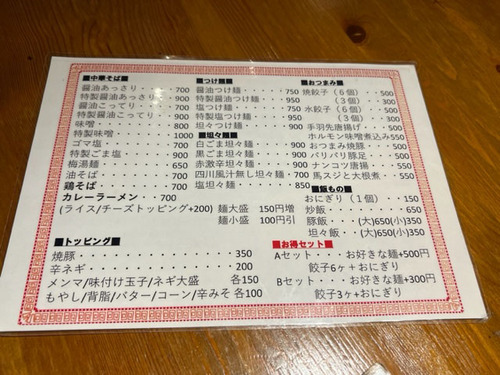 ■中華そば■
醤油あっさり・・・700
特製醤油あっさり・・900
醤油こってり・・・700
特製醤油こってり・・900
味噌・・・・・・・800
特製味噌・・・・・1000
ゴマ塩・・・・・・700
特製ごま塩・・・・900
梅湯麺・・・・・・650
油そば・・・・・・700
鶏そば・・・・・・700
カレーラーメン・・700
(ライス/チーズトッピング+200)
■つけ麺■
醤油つけ麺・・・・750
特製醤油つけ麺・・950
塩つけ麺・・・・・750
特製塩つけ麺・・・950
坦々つけ麺・・・・900
■坦々麺■
白ごま坦々麺・・・900
黒ごま坦々麺・・・900
赤激辛坦々麺・・・900
四川風汁無し坦々麺・900
塩坦々麺・・・・・850
麺大盛 150円増
麺小盛 100円引
■おつまみ■
焼餃子（６個）・・500
（３個）・・300
水餃子（６個）・・500
（３個）・・300
手羽先唐揚げ・・・500
ホルモン味噌煮込み550
おつまみ焼豚・・・500
パリパリ豚足・・・500
ナンコツ唐揚・・・550
馬スジと大根煮・・550
■飯もの■
おにぎり（１個）・・150
炒飯・・・・・・・650
豚飯・・(大)650(小)350
坦々飯・・(大)650(小)350
■トッピング■
焼豚・・・・・・・・・350
辛ネギ・・・・・・・・200
メンマ/味付け玉子/ネギ大盛 各150
もやし/背脂/バター/コーン/辛みそ 各100
■お得セット■
Aセット・・お好きな麺+500円
餃子6ヶ+おにぎり
Bセット・・お好きな麺+300円
餃子3ヶ+おにぎり